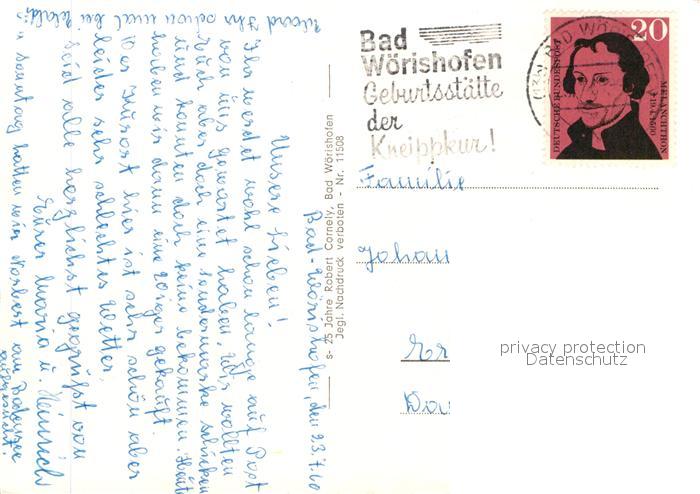 Bad-Wörishofen, den 23.7.60
Unsere Lieben!
Ihr werdet wohl schon lange auf Post
von uns gewartet haben, wir wollten
Euch aber doch eine Sondermarke schicken
und konnten doch keine bekommen. Heute
haben wir dann eine 20iger gekauft.
Der Kurort hier ist sehr schön aber
leider sehr schlechtes Wetter.
Seid alle herzlichst gegrüßt von
Eurer Maria u. Heinrich
Sonntag hatten wir Norbert am Bodensee
aufgesucht.
Ward Ihr schon mal bei
s- 25 Jahre Robert Cornely, Bad Wörishofen
Jegl. Nachdruck verboten - Nr. 11508
Bad
Wörishofen
Geburtsstätte
der
Kneippkur!
BAD WÖ
20
DEUTSCHE BUNDESPOST
MELANCHTHON
Familie
Johan
Er
privacy protection
Datenschutz